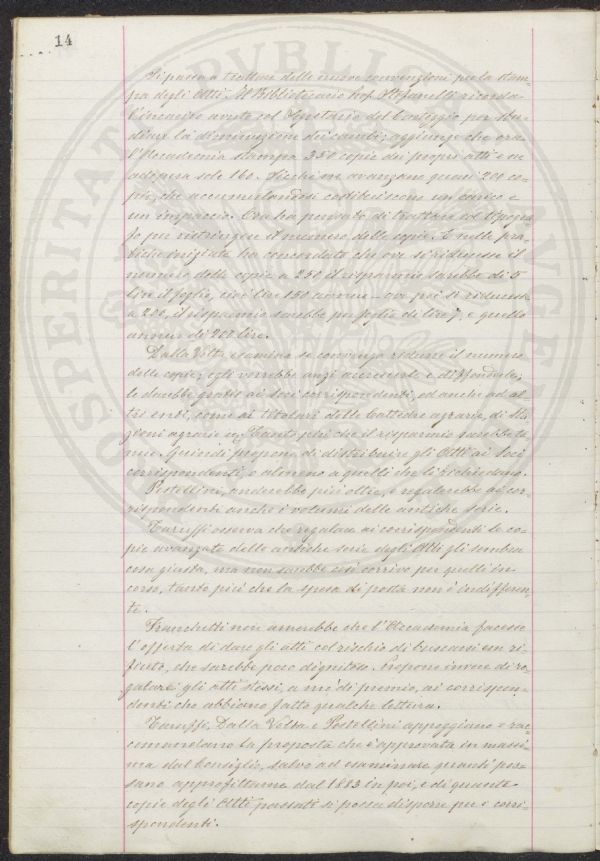 14
Si passa a trattare delle nuove convenzioni per la stam-
pa degli Atti. Il Bibliotecario Prof. Stefanelli ricorda
l'incarico avuto col Segretario del Carteggio per stu-
diare la diminuzione dei cambi; aggiunge che ora
l'Accademia stampa 350 copie dei propri atti e ne
adopera sole 160. Sicchè ne avanzano quasi 200 co-
pie, che accumulandosi costituiscono un carico e
un impaccio. Ora ha pensato di trattare col tipogra-
fo per restringere il numero delle copie. E nelle pra-
tiche iniziate ha concordato che ove si riducesse il
numero delle copie a 250 il risparmio sarebbe di 5
lire il foglio, cioè lire 150 annue - ove poi si riducesse
a 200, il risparmio sarebbe per foglio di lire 7, e quello
annuo di 200 lire.
Dalla Volta, esamina se convenga ridurre il numero
delle copie; egli vorrebbe anzi accrescerle e diffonderle;
le darebbe gratis ai soci corrispondenti, ed anche ad al-
tri enti, come ai titolari delle Cattedre agrarie, di Sta-
zioni agrarie ec. Tanto più che il risparmio sarebbe te-
nue. Quindi propone di distribuire gli Atti ai soci
corrispondenti, o almeno a quelli che li richiedono.
Pestellini, anderebbe più oltre, e regalerebbe ai cor-
rispondenti anche i volumi delle antiche serie.
Taruffi osserva che regalare ai corrispondenti le co-
pie avanzate delle antiche serie degli Atti gli sembra
cosa giusta, ma non sarebbe così corrivo per quelli in
corso, tanto più che la spesa di posta non è indifferen-
te.
Franchetti non amerebbe che l'Accademia facesse
l'offerta di dare gli atti col rischio di buscarsi un ri-
fiuto, che sarebbe poco dignitoso. Propone invece di re-
galare gli atti stessi, a mo' di premio, ai corrispon-
denti che abbiano fatto qualche lettura.
Taruffi, Dalla Volta e Pestellini appoggiano e rac-
comandano la proposta che è approvata in massi-
ma dal Consiglio, salvo ad esaminare quanti pos-
sano approfittarne dal 1883 in poi, e di quante
copie degli Atti passati si possa disporre per i corri-
spondenti.
PROSPERITATI PVBLICAE AVGENDAE